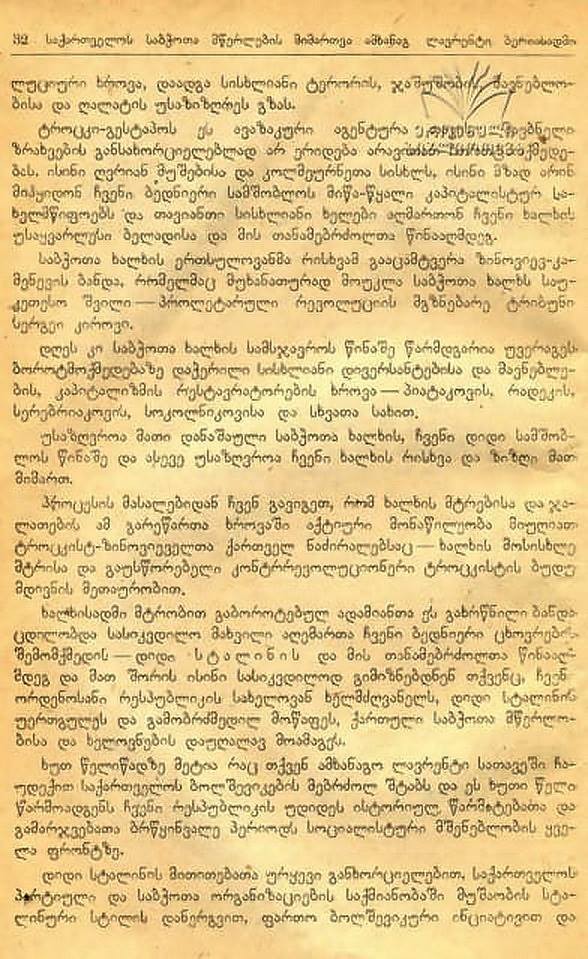 32 საქართველოს საბჭოთა მწერლების მიმართვა ამხანაგ ლავრენტი ბერიასადმი
ლუციური ხროვა, დაადგა სისხლიანი ტერორის, ჯაშუშობის, მავნებლო-
ბისა და ღალატის უსაზიზღრეს გზას.
ტროცკი-გესტაპოს ეს ავაზაკური აგენტურა
ზრახვების განსახორციელებლად არ ერიდება
ბას. ისინი ღვრიან მუშებისა და კოლმეურნეთა სისხლს, ისინი მზად არიან
მიჰყიდონ ჩვენი ბედნიერი სამშობლოს მიწა-წყალი კაპიტალისტურ სა-
ხელმწიფოებს და თავიანთი სისხლიანი ხელები აღმართონ ჩვენი ხალხის
უსაყვარლესი ბელადისა და მის თანამებრძოლთა წინააღმდეგ.
საბჭოთა ხალხის ერთსულოვანმა რისხვამ გააცამტვერა ზინოვიევ-კა-
მენევის ბანდა, რომელმაც მუხანათურად მოუკლა საბჭოთა ხალხს საუ-
კეთესო შვილი — პროლეტარული რევოლუციის მგზნებარე ტრიბუნი
სერგეი კიროვი.
დღეს კი საბჭოთა ხალხის სამსჯავროს წინაშე წარმდგარია უვერაგეს
ბოროტმოქმედებაზე დაჭერილი სისხლიანი დივერსანტებისა და მავნებლე-
ბის, კაპიტალიზმის რესტავრატორების ხროვა — პიატაკოვის, რადეკის,
სერებრიაკოვის, სოკოლნიკოვისა და სხვათა სახით.
უსაზღვროა მათი დანაშაული საბჭოთა ხალხის, ჩვენი დიდი სამშობ-
ლოს წინაშე და ასევე უსაზღვროა ჩვენი ხალხის რისხვა და ზიზღი მათ
მიმართ.
პროცესის მასალებიდან ჩვენ გავიგეთ, რომ ხალხის მტრებისა და ჯა-
ლათების ამ გარეწართა ხროვაში აქტიური მონაწილეობა მიუღიათ
ტროცკისტ-ზინოვიეველთა ქართველ ნაძირალებსაც — ხალხის მოსისხლე
მტრისა და გაუსწორებელი კონტრრევოლუციონერი ტროცკისტის ბუდუ
მდივნის მეთაურობით.
ხალხისადმი მტრობით გაბოროტებულ ადამიანთა ეს გახრწნილი ბანდა
ცდილობდა სასიკვდილო მახვილი აღემართა ჩვენი ბედნიერი ცხოვრების
შემომქმედის — დიდი სტალინის და მის თანამებრძოლთა წინააღ-
მდეგ და მათ შორის ისინი სასიკვდილოდ გიმიზნებდნენ თქვენც, ჩვენ
ორდენოსანი რესპუბლიკის სახელოვან ხელმძღვანელს, დიდი სტალინის
უერთგულეს და გამობრძმედილ მოწაფეს, ქართული საბჭოთა მწერლო-
ბისა და ხელოვნების დაუღალავ მოამაგეს.
ხუთ წელიწადზე მეტია რაც თქვენ ამხანაგო ლავრენტი სათავეში ჩა-
უდექით საქართველოს ბოლშევიკების მებრძოლ შტაბს და ეს ხუთი წელი
წარმოადგენს ჩვენი რესპუბლიკის უდიდეს ისტორიულ წარმატებათა და
გამარჯვებათა ბრწყინვალე პერიოდს სოციალისტური მშენებლობის ყვე-
ლა ფრონტზე.
დიდი სტალინის მითითებათა ურყევი განხორციელებით, საქართველოს
პარტიული და საბჭოთა ორგანიზაციების საქმიანობაში მუშაობის სტა-
ლინური სტილის დანერგვით, ფართო ბოლშევიკური ინციატივით და